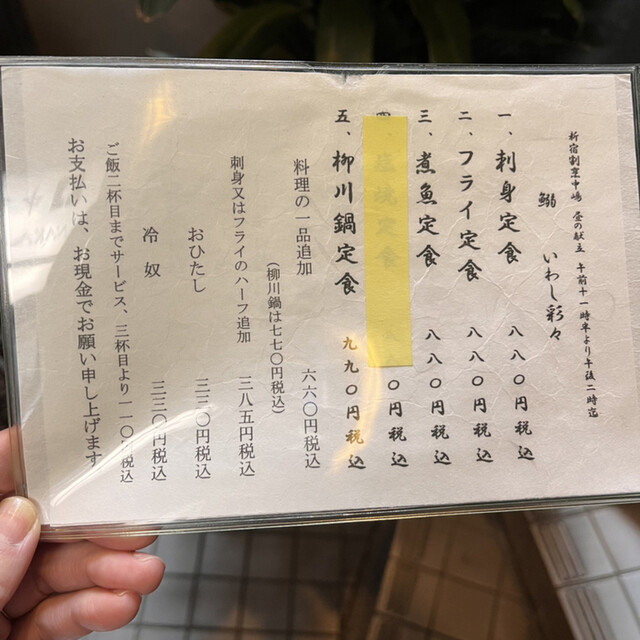 新宿割烹中嶋 昼の献立 午前十一時半より午後二時迄
鰯 いわし彩々
一、刺身定食 八八〇円税込
二、フライ定食 八八〇円税込
三、煮魚定食 八八〇円税込
四、塩焼定食 〇円税込
五、柳川鍋定食 九九〇円税込
料理の一品追加 六六〇円税込
(柳川鍋は七七〇円税込)
刺身又はフライのハーフ追加 三八五円税込
おひたし 三三〇円税込
冷奴 三三〇円税込
ご飯二杯目までサービス、三杯目より一一〇円税込
お支払いは、お現金でお願い申し上げます